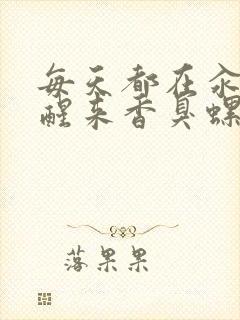 每天都在
醒来香臭螺
落果果